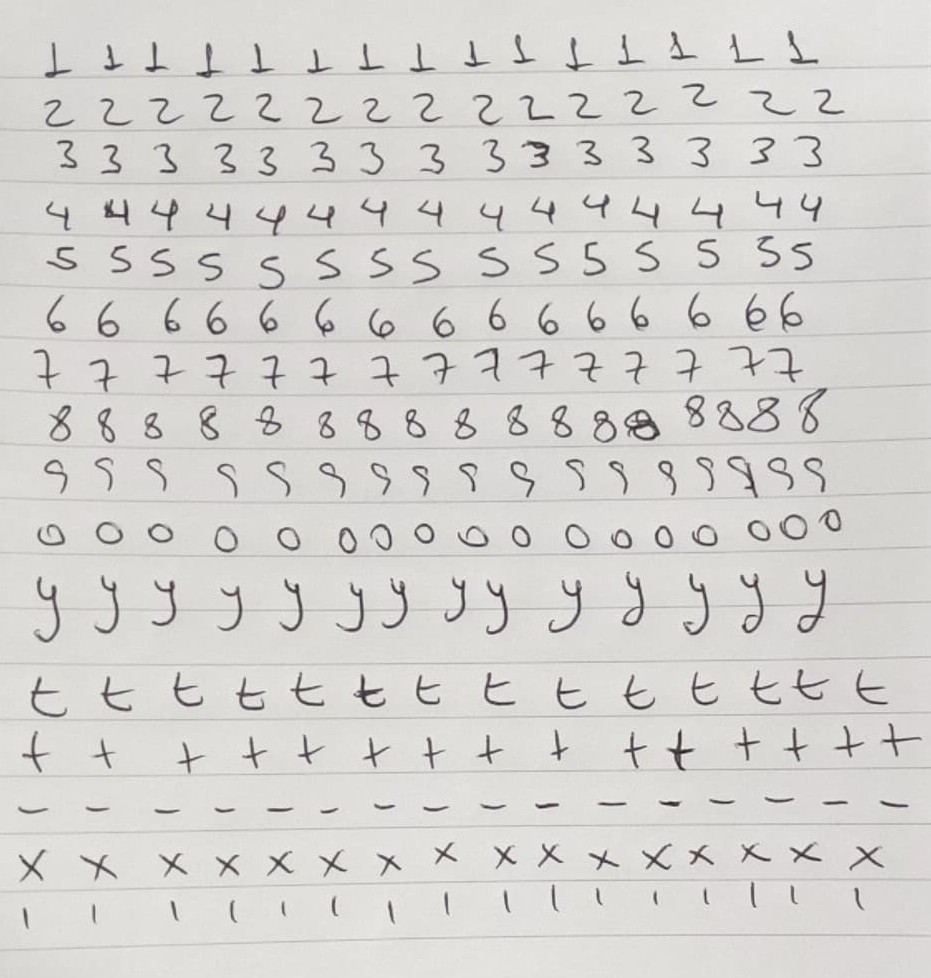 1 1 1 1 1 1 1 1 1 1 1 1 1 1 1
2 2 2 2 2 2 2 2 2 2 2 2 2 2 2
3 3 3 3 3 3 3 3 3 3 3 3 3 3 3
4 4 4 4 4 4 4 4 4 4 4 4 4 4 4
5 5 5 5 5 5 5 5 5 5 5 5 5 5 5
6 6 6 6 6 6 6 6 6 6 6 6 6 6 6
7 7 7 7 7 7 7 7 7 7 7 7 7 7 7
8 8 8 8 8 8 8 8 8 8 8 8 8 8 8 8 8
9 9 9 9 9 9 9 9 9 9 9 9 9 9 9 9 9
0 0 0 0 0 0 0 0 0 0 0 0 0 0 0 0 0
y y y y y y y y y y y y y y
t t t t t t t t t t t t t t
+ + + + + + + + + + + + + + +
- - - - - - - - - - - - - - - -
x x x x x x x x x x x x x x x x
| | | | | | | | | | | | | | | |